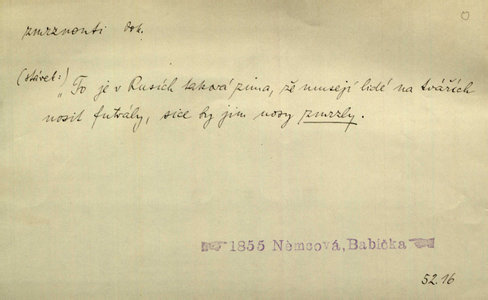 zmrznouti dok.
(stávet:)
„To je v Rusích taková zima, že musejí lidé na tvářích
nosit futrály, sice by jim nosy zmrzly.
1855 Němcová, Babička
52.16